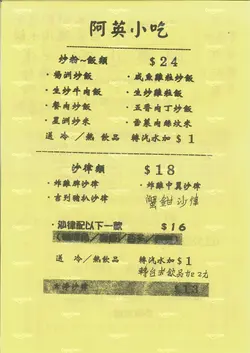 阿英小吃
炒粉~飯類 $24
・楊洲炒飯 ・咸魚雞粒炒飯
・生炒牛肉飯 ・生炒雞粒飯
・餐肉炒飯 ・五香肉丁炒飯
・星洲炒米 ・雪菜肉絲炆米
送 冷/熱飲品 轉汽水加$1
沙律類 $18
・炸雞脾沙律 ・炸雞中翼沙律
・吉列豬扒沙律 蟹鉗沙律
・沙律配以下一款 $16
送 冷/熱飲品 轉汽水加$1
沙律 $13